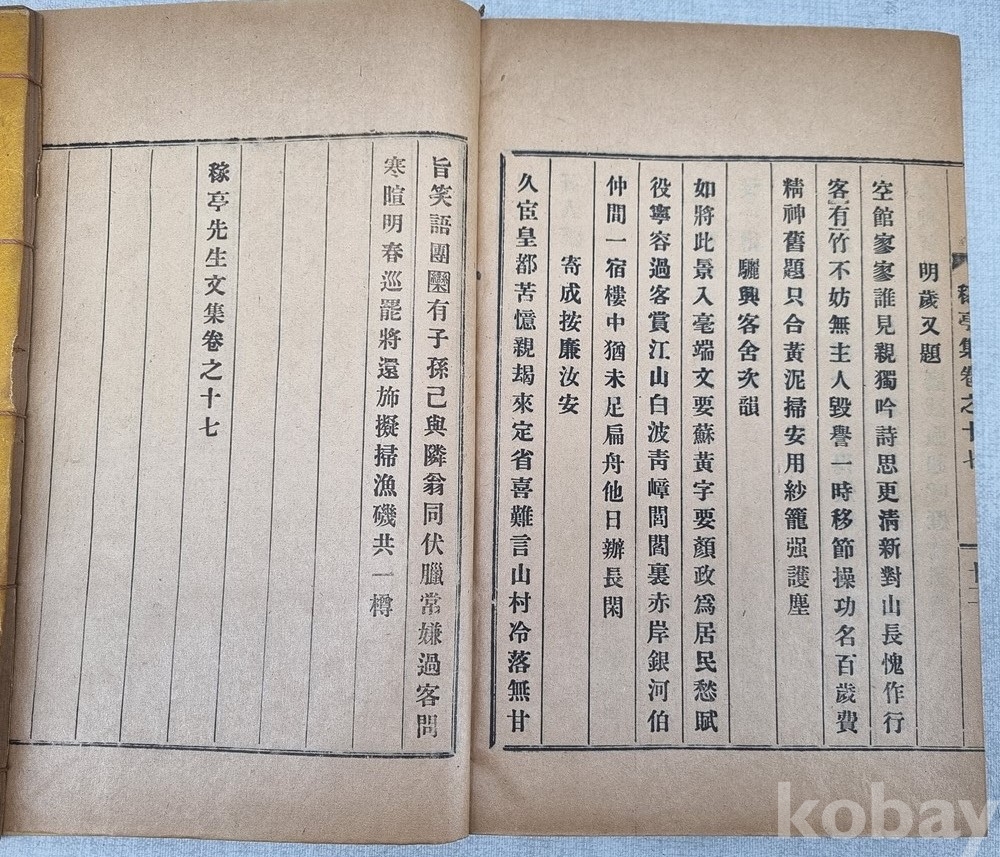 稼亭集卷之十七
明歲又題
空館寥寥誰見親獨吟詩思更清新對山長愧作行
客有竹不妨無主人毀譽一時移節操功名百歲費
精神舊題只合黃泥掃安用紗籠强護塵
驪興客舍次韻
如將此景入毫端文要蘇黃字要顏政爲居民愁賦
役寧容過客賞江山白波靑嶂閭閻裏赤岸銀河伯
仲間一宿樓中猶未足扁舟他日辦長閑
寄成按廉汝安
久宦皇都苦憶親朅來定省喜難言山村冷落無甘
旨笑語團欒有子孫己與隣翁同伏臘常嫌過客問
寒暄明春巡罷將還斾擬掃漁磯共一樽
稼亭先生文集卷之十七
kobay